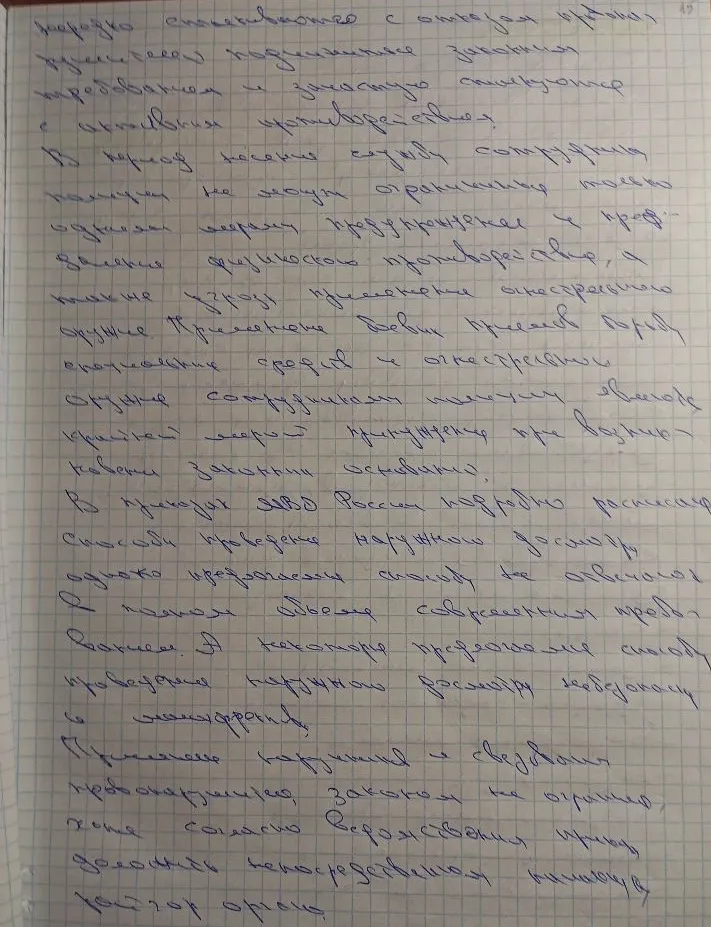 нередко сталкиваются с отказом правона
рушителей подчиниться законным
требованиям и зачастую сталкиваются
с активным противодействием.
В период несения службы сотрудники
полиции не могут ограничиться только
одними мерами предупреждения и преодо-
ления физического противодействия, а
также угрозы применения огнестрельного
оружия. Применение боевых приемов борьбы
специальных средств и огнестрельного
оружия сотрудниками полиции является
крайней мерой принуждения при возник-
новении законных оснований.
В приказах МВД России подробно расписаны
способы проведения наружного досмотра,
однако предлагаемые способы не отвечают
в полном объеме современным требо-
ваниям. А некоторые предлагаемые способы
проведения наружного досмотра небезопасны
и неэффективны.
Применение наручников и связывания
правонарушителя, законом не ограничено,
хотя согласно ведомственных приказов
доложить непосредственному начальнику
орган.